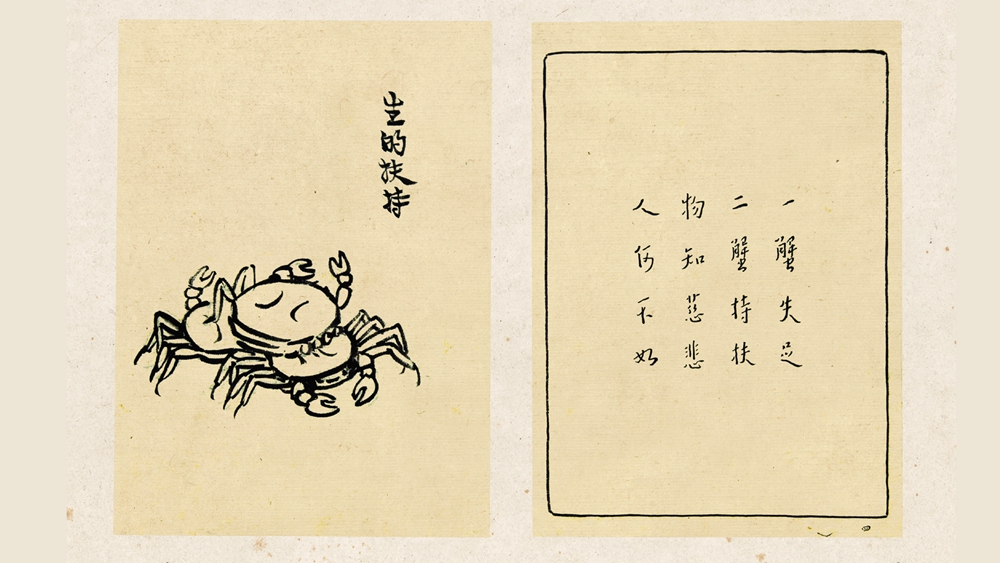 生的扶持
一蟹失足
二蟹持扶
物知慈悲
人何不如
四